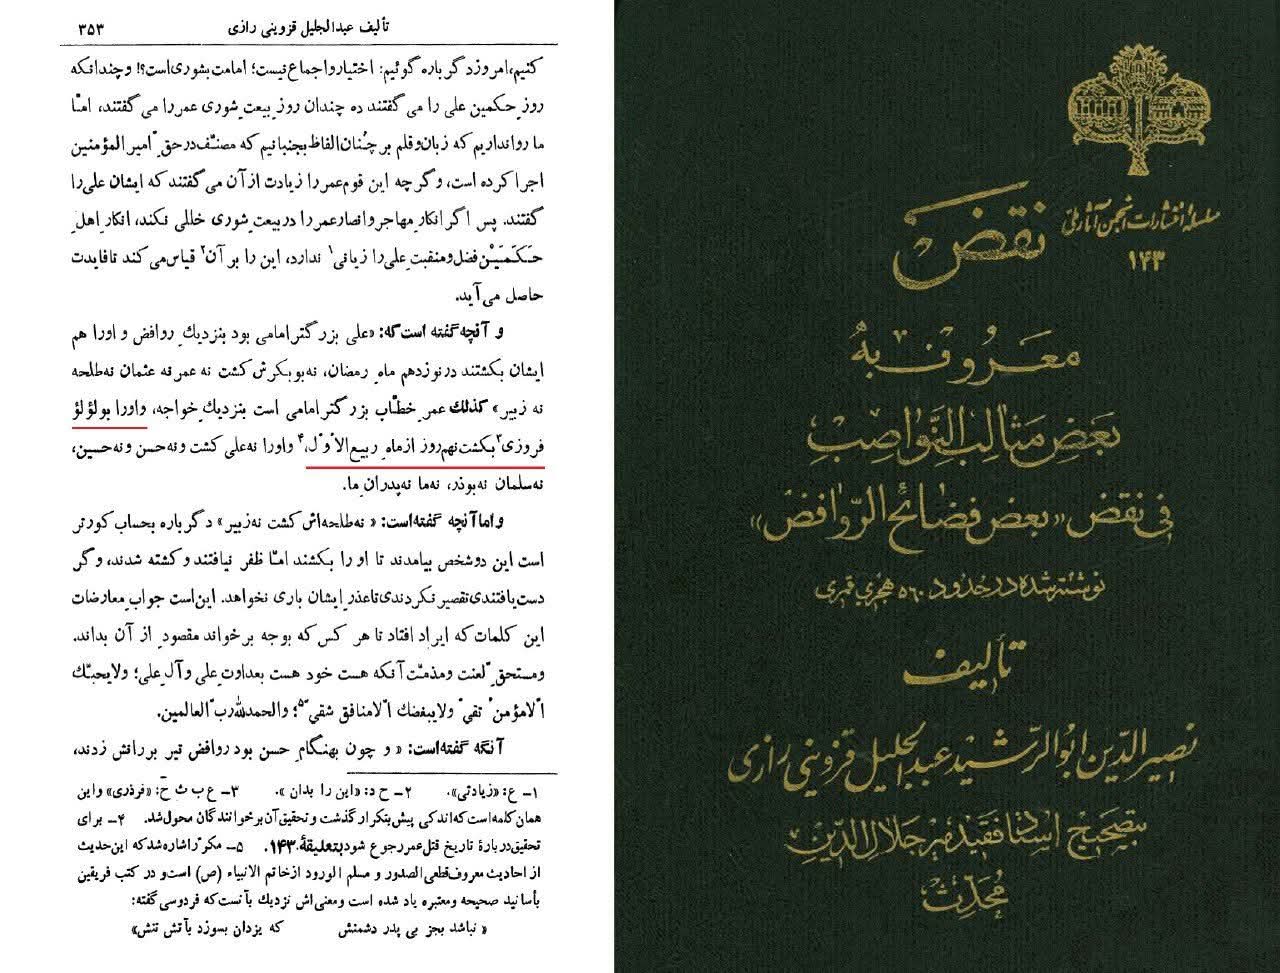 تأليف عبدالجليل قزوينى رازى
۳۵۳
كنيم، امروز دگرباره گوئيم: اختيار و اجماع نيست؛ امامت بشورى است؟! و چندانكه
روز حكمين على را مى گفتند ده چندان روز بيعت شورى عمر را مى گفتند، امّا
ما روا نداريم كه زبان و قلم بر چُنان الفاظ بجنبانيم كه مصنّف در حقّ امير المؤمنين
اجرا كرده است، و گرچه اين قوم عمر را زيادت از آن مى گفتند كه ايشان على را
گفتند. پس اگر انكار مهاجر و انصار عمر را در بيعت شورى خللى نكند، انكار اهل
حَكَمَيْن فضل و منقبت على را زيانى۱ ندارد، اين را بر آن۲ قياس مى كند تا فايدت
حاصل مى آيد.
و آنچه گفته است كه: «على بزرگتر امامى بود بنزديك روافض و او را هم
ايشان بكشتند در نوزدهم ماه رمضان، نه بوبكرش كشت نه عمر نه عثمان نه طلحه
نه زبير» كذلك عمر خطّاب بزرگتر امامى است بنزديك خواجه، و او را بولؤلؤ
فروزى۳ بكشت نهم روز از ماه ربيع الاوّل،۴ و او را نه على كشت و نه حسن و نه حسين،
نه سلمان نه بوذر، نه ما نه پدران ما.
و اما آنچه گفته است: «نه طلحه اش كشت نه زبير» دگرباره بحساب كورتر
است اين دو شخص بيامدند تا او را بكشند امّا ظفر نيافتند و كشته شدند، و گر
دست يافتندى تقصير نكردندى تا عذر ايشان بارى نخواهد. اين است جواب معارضات
اين كلمات كه ايراد افتاد تا هر كس كه بوجه برخواند مقصود از آن بداند.
و مستحقّ لعنت و مذمّت آنكه هست خود هست بعداوت على و آل على؛ ولا يحبّك
الّا مؤمنٌ تقىّ ولا يبغضك الّا منافق شقى۵؛ والحمدلله ربّ العالمين.
آنگه گفته است: «و چون بهنگام حسن بود روافض تير بر رانش زدند،
۱- ع: «زيادتى». ۲- ح د: «اين را بدان». ۳- ع ب ث ح: «فرذرى» و اين
همان كلمه است كه اندكى پيش بتكرار گذشت و تحقيق آن برخوانندگان محول شد. ۴- براى
تحقيق دربارهٔ تاريخ قتل عمر رجوع شود بتعليقهٔ ۱۴۳. ۵- مكرّر اشاره شد كه اين حديث
از احاديث معروف قطعى الصدور و مسلم الورود از خاتم الانبياء (ص) است و در كتب فريقين
بأسانيد صحيحه و معتبره ياد شده است و معنى اش نزديك بآنست كه فردوسى گفته:
« نباشد بجز بى پدر دشمنش كه يزدان بسوزد بآتش تنش»
سلسله انتشارات انجمن آثار ملى
۱۴۳
نقض
معروف به
بعض مثالب النّواصب
فى نقض «بعض فضائح الرّوافض»
نوشته شده در حدود ۵۶۰ هجرى قمرى
تأليف
نصير الدّين ابوالرّشيد عبد الجليل قزوينى رازى
بتصحيح استاد فقيد مير جلال الدّين
محدّث